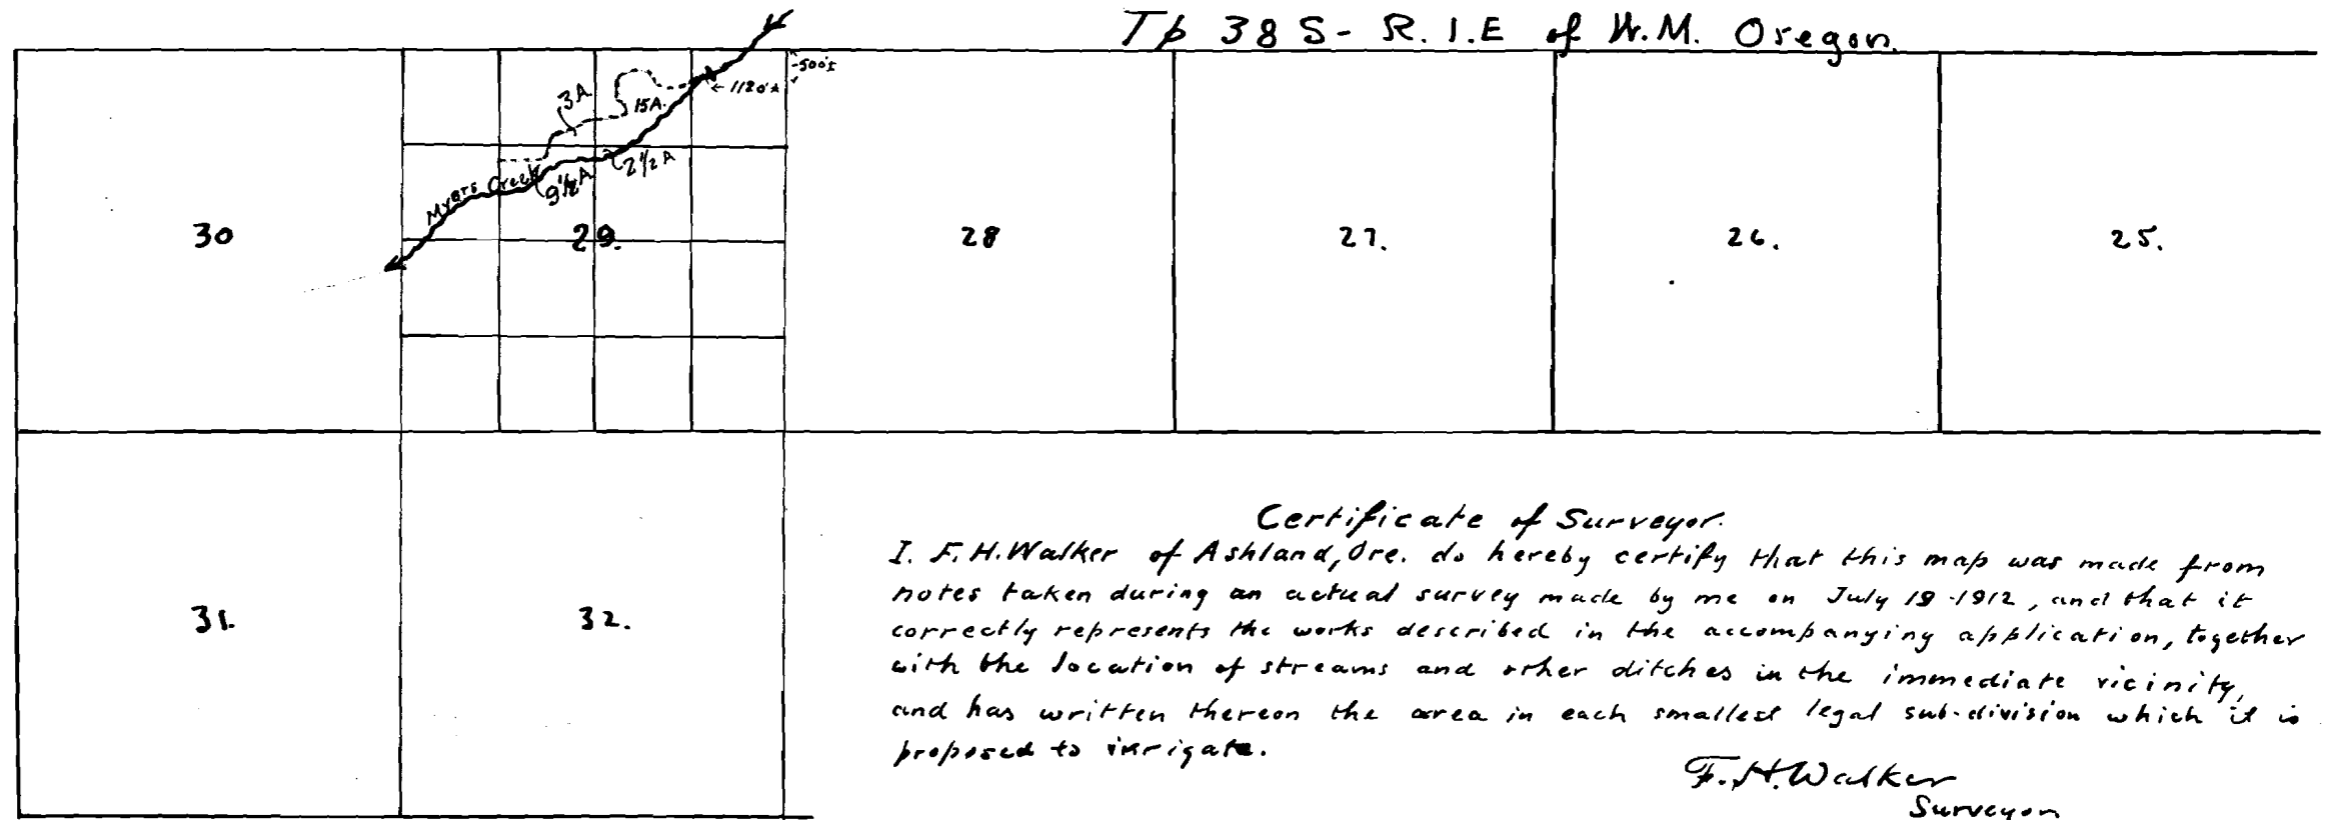 Tp 38 S - R. 1. E of W. M. Oregon.
-500'±
← 1120'±
3 A.
15 A.
2 1/2 A
9 1/2 A
Myers Creek
30
29.
28
27.
26.
25.
31.
32.
Certificate of Surveyor.
I. F. H. Walker of Ashland, Ore. do hereby certify that this map was made from
notes taken during an actual survey made by me on July 19-1912, and that it
correctly represents the works described in the accompanying application, together
with the location of streams and other ditches in the immediate vicinity,
and has written thereon the area in each smallest legal sub-division which it is
proposed to irrigate.
F. H. Walker
Surveyor